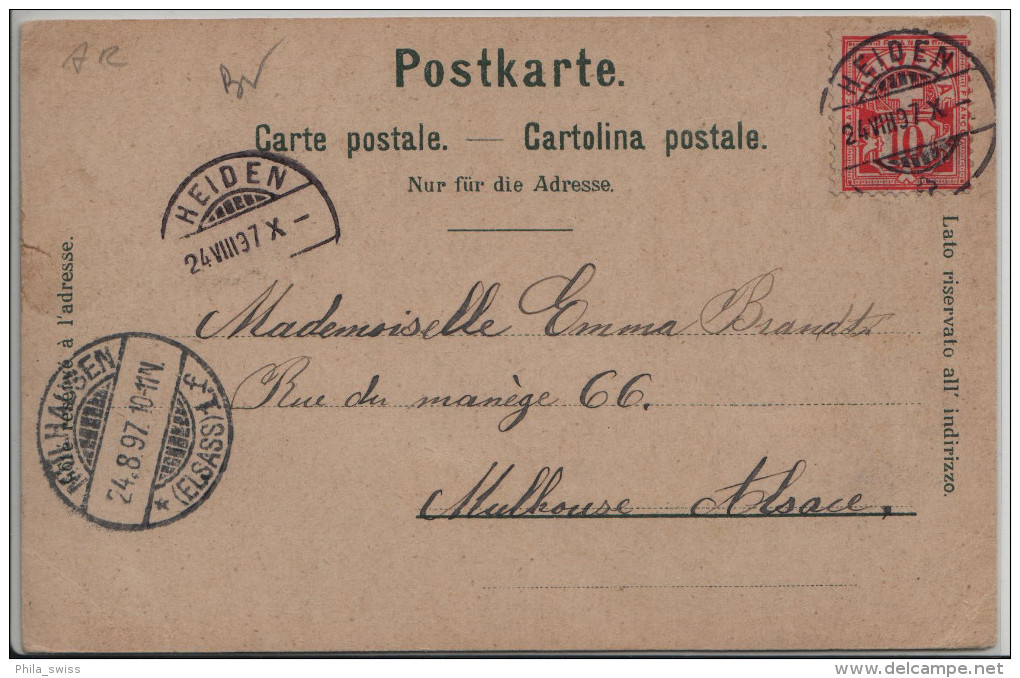 AR
BW
Postkarte.
Carte postale. — Cartolina postale.
Nur für die Adresse.
HEIDEN
24 VIII 97 X
FRANCO
10
HEIDEN
24 VIII 97 X –
Côté réservé à l'adresse.
Lato riservato all' indirizzo.
Mademoiselle Emma Brandt
Rue du manège 66.
Mulhouse Alsace.
MÜLHAUSEN
24.8.97. 10-11 N.
* (ELSASS) 1
Phila_swiss
delcampe.net